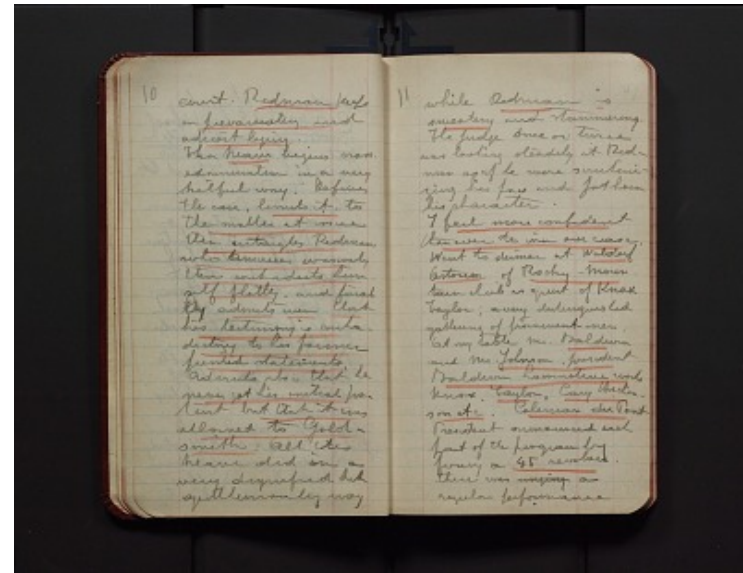 10
court. Redman pays
on prevarication and
adroit lying.
Then Neave begins cross
examination in a very
skillful way. Defines
the case, limits it to
the matter at issue
then entangles Redman
who
self flatly. and final
ly admits even that
his testimony is contra
dictory to his former
printed statements.
Admits also that he
never got his initial pa
tent but that it was
allowed to Gold-
smith. All this
Neave did in a
very dignified but
gentlemanly way
11
while Redman is
sweating and stammering.
The judge once or twice
was looking steadily at Red-
man as if he were scrutini-
zing his face and
his character.
I feel more confident
than ever to win our case.
Went to dinner at Waldorf
Astoria of Rocky Moun
tain club as guest of Knox
Taylor, a very distinguished
gathering of prominent men.
At my table Mr. Baldwin
and Mr. Johnson, president
Baldwin Locomotive works
Knox Taylor, Cary Hutchin-
son etc. Coleman du Pont
President announced each
part of the program by
firing a 45 revolver.
There was singing a
regular performance